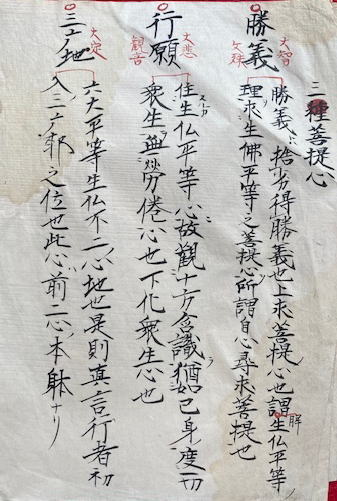 三種菩提心
勝義
大智
文殊
勝義ニハ捨劣得勝義也上求菩提心也謂生仏平等ノ
解
理求生佛平等之菩提心所謂自心尋求菩提也
行願
大悲
観音
住生仏平等心故觀十方含識猶己身度一切
衆生無労倦心也下化衆生心也
三广地
大定
六大平等生仏不二ノ心地也是則真言行者初
入三广耶之位也此心前二心ノ本躰ナリ